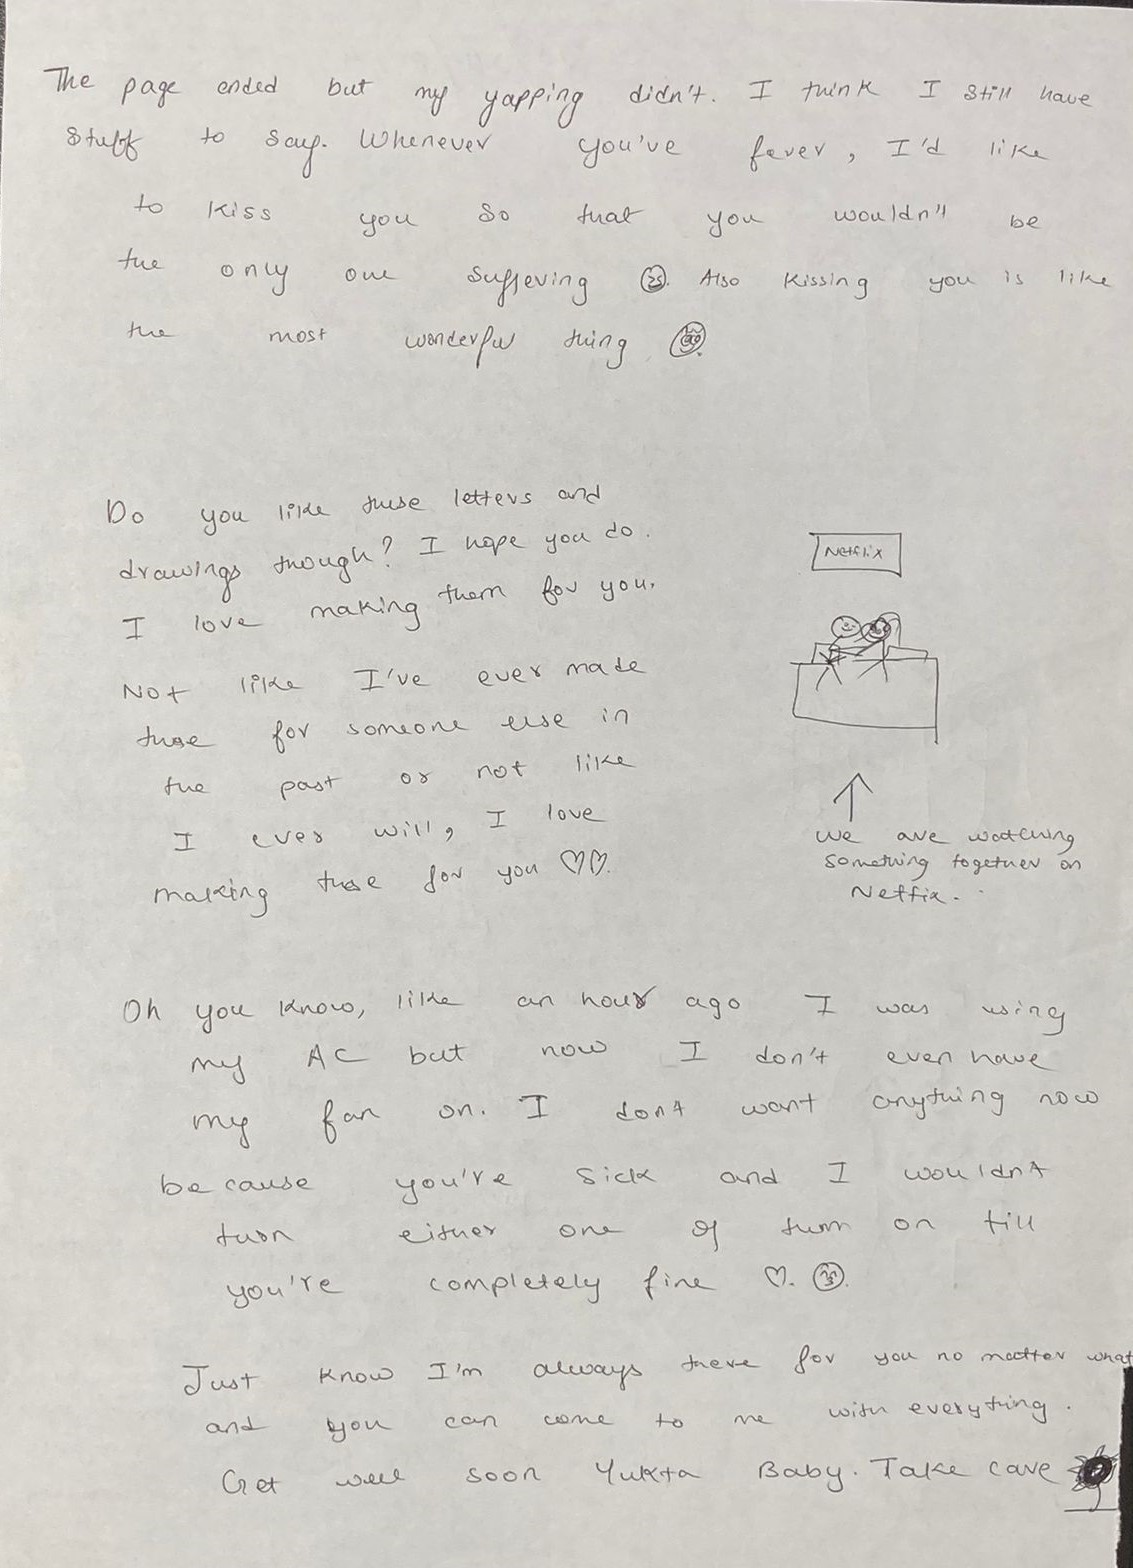 The page ended but my yapping didn't. I think I still have
stuff to say. Whenever you've fever, I'd like
to kiss you so that you wouldn't be
the only one suffering. Also kissing you is like
the most wonderful thing
Do you like these letters and
drawings though? I hope you do.
I love making them for you.
Not like I've ever made
those for someone else in
the past or not like
I ever will, I love
making those for you ♡♡.
Netflix
↑
we are watching
something together on
Netflix.
Oh you know, like an hour ago I was using
my AC but now I don't even have
my fan on. I don't want anything now
because you're sick and I wouldn't
turn either one of them on till
you're completely fine ♡.
Just know I'm always there for you no matter what
and you can come to me with everything.
Get well soon Yukta Baby. Take care